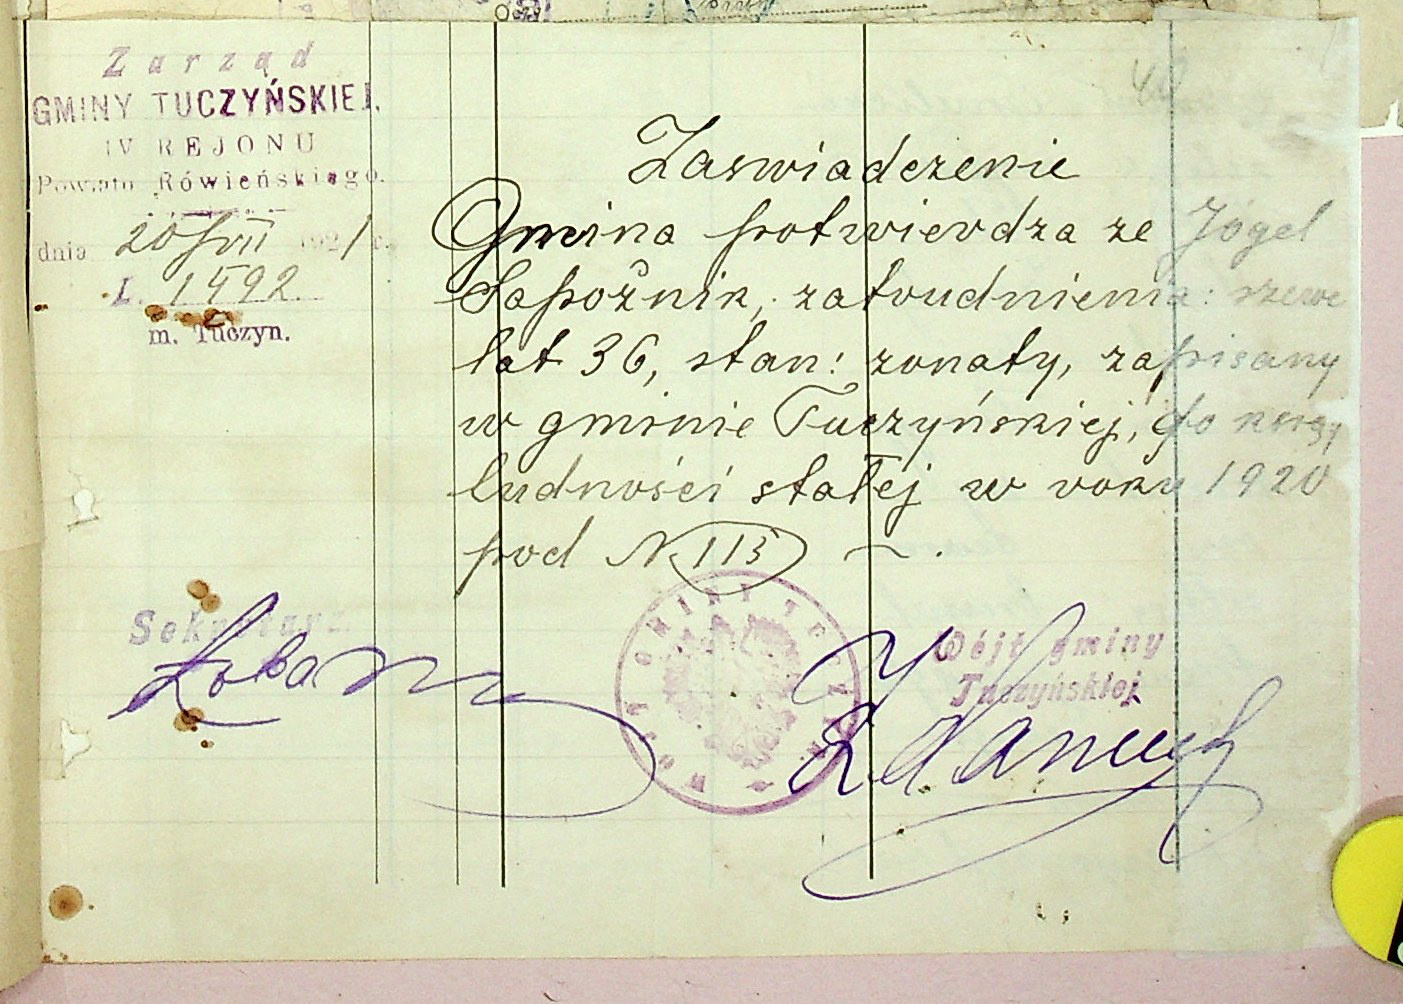 40
Zarząd
GMINY TUCZYŃSKIEJ.
IV REJONU
Powiatu Rówieńskiego.
dnia 20/VII 1921 r.
L. 1592
m. Tuczyn.
Zaswiadczenie
Gmina potwierdza ze Jógel
Sapożnik, zatrudnienia: szewc
lat 36, stan: zonaty, zapisany
w gminie Tuczyńskiej, do księgi
ludności stałej w roku 1920
pod N 115 — .
Sekretarz
Wójt gminy
Tuczyńskiej